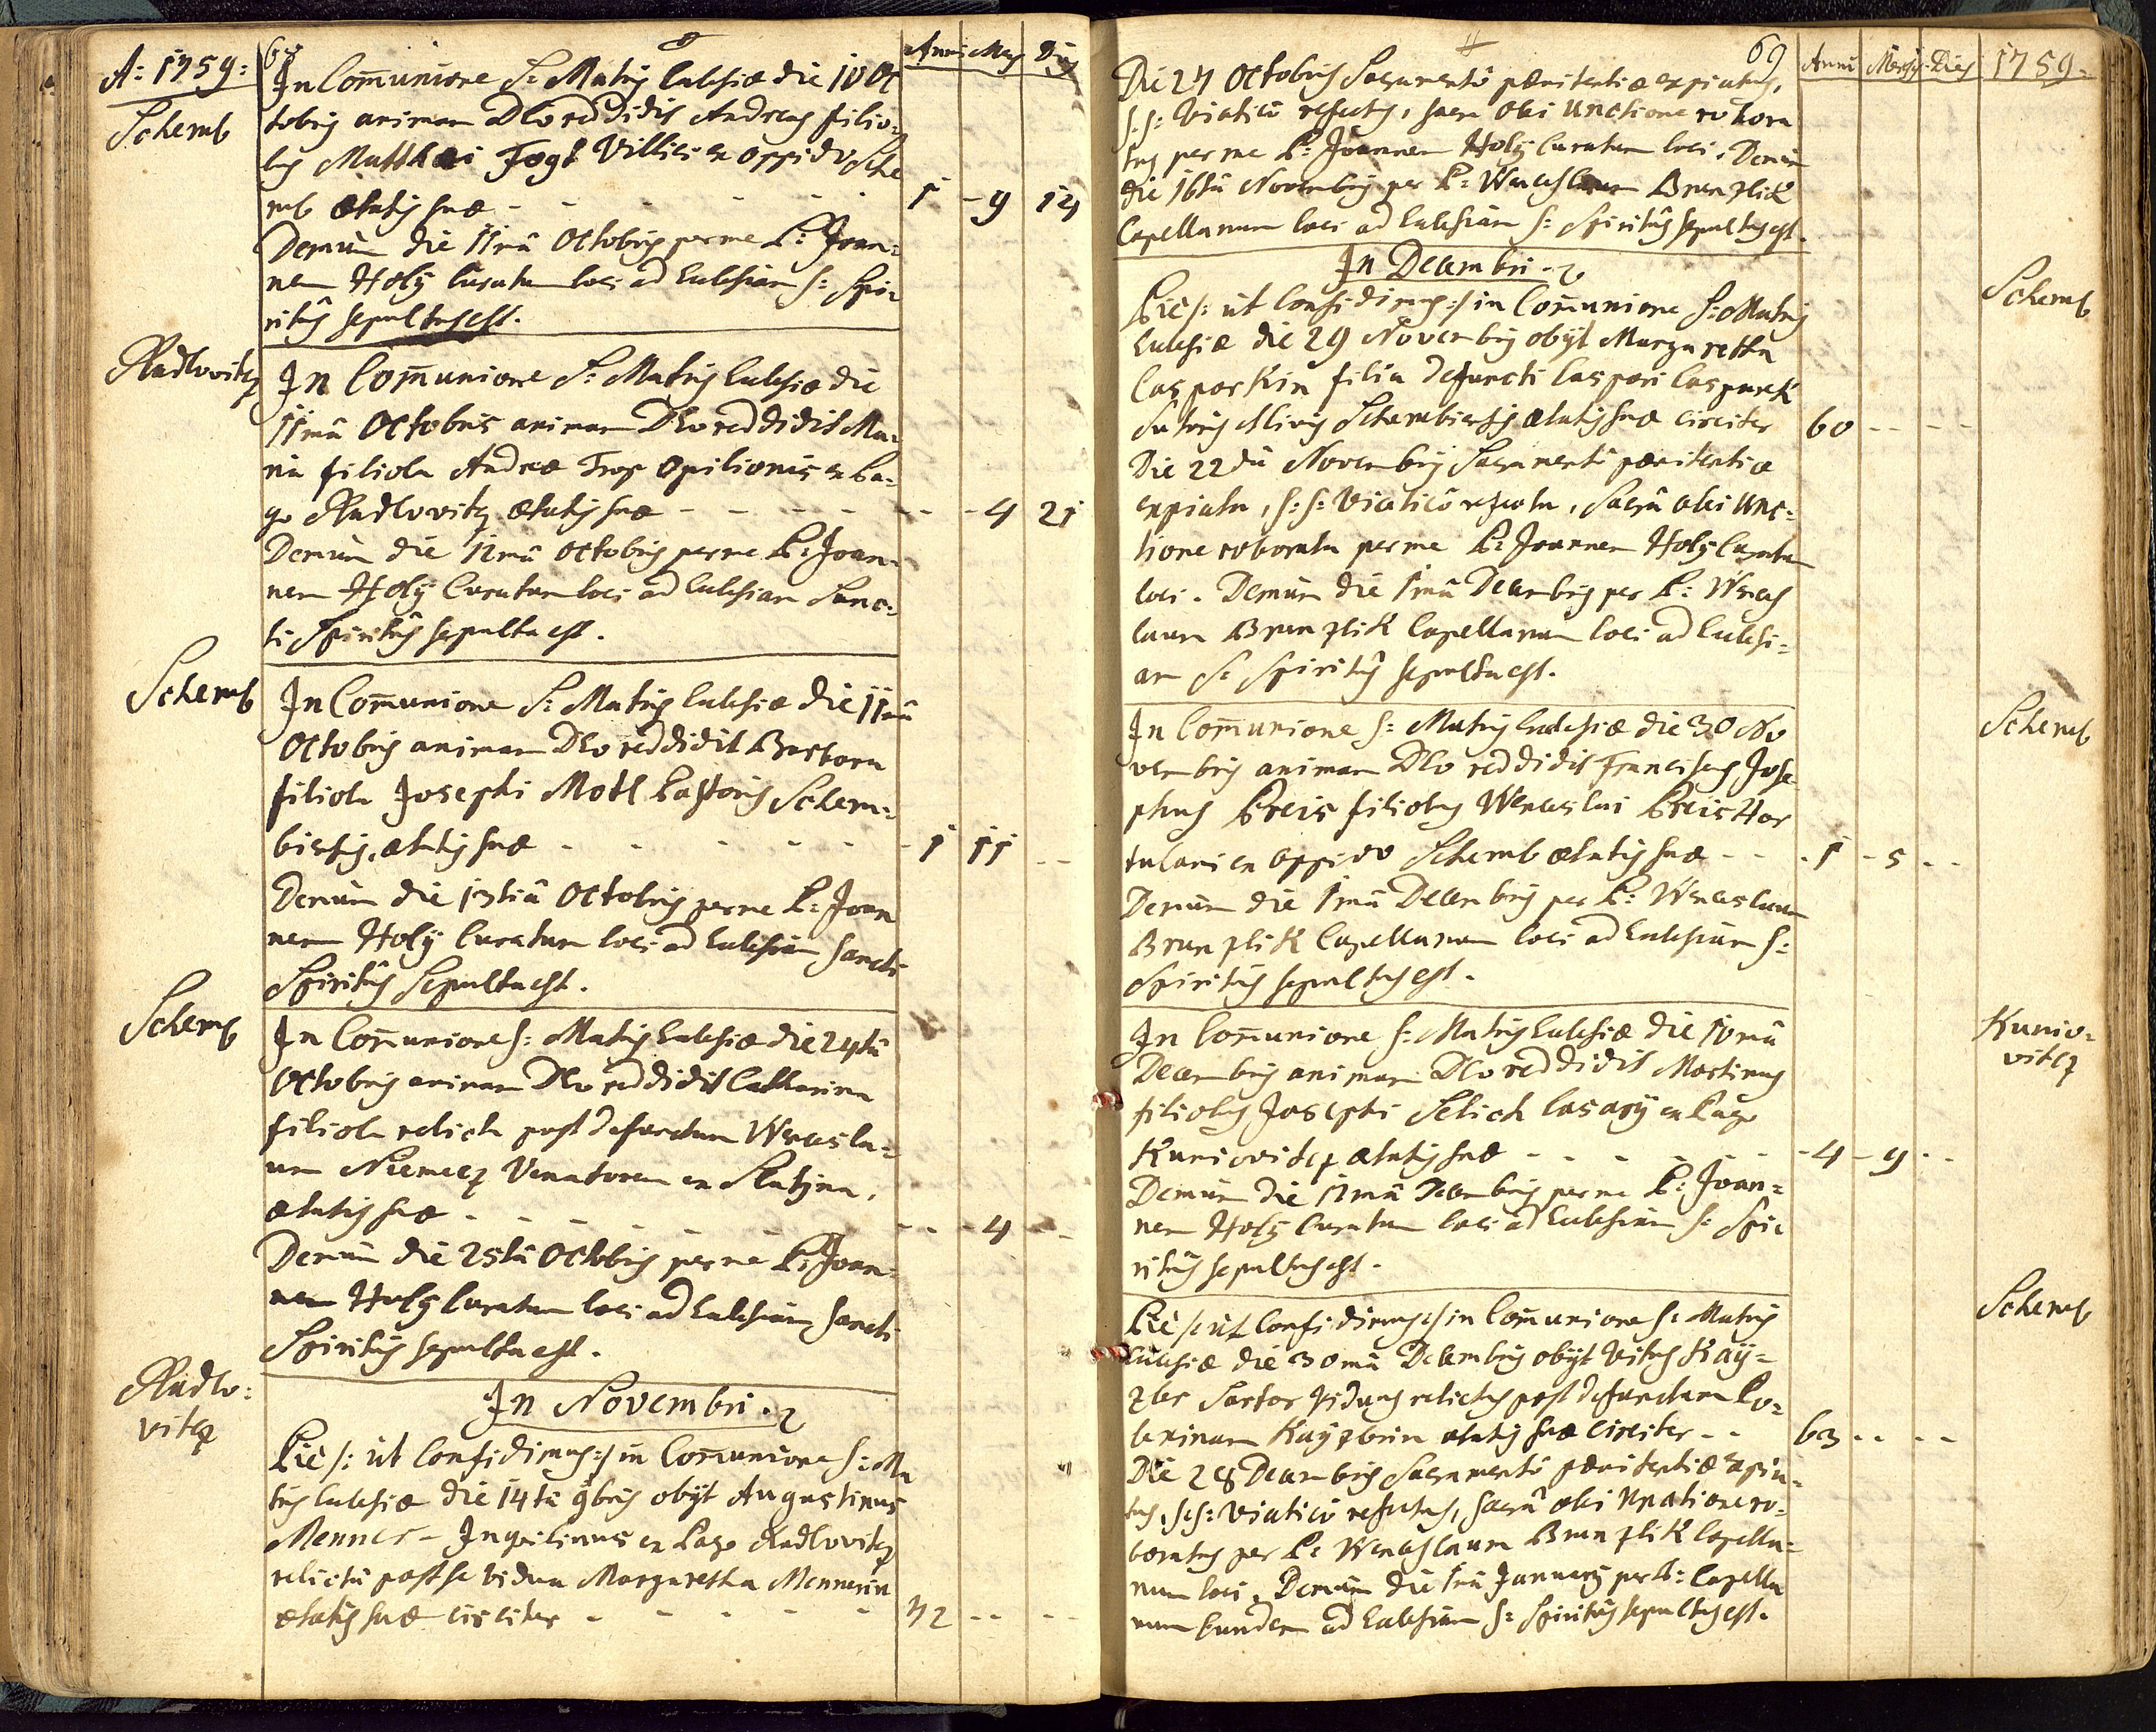 A: 1759:
68
Anni Mens Dies
Schemb
In Com̄unione S: Matris Ecclesiæ die 10 Oc
tobris animam Deo reddidit Andreas filio=
lus Matthæi Fogt Villici ex oppido Sche
mb ætatis suæ - - - - - 1 - 9 14
Demùm die 11mâ Octobris per me P: Joan=
nem Holÿ Curatum loci ad Ecclesiam S: Spi=
ritûs sepultus est.
Radlovitz
In Com̄unione S: Matris Ecclesiæ die
11mâ Octobris animam Deo reddidit Ma=
ria filiola Andreæ Trop Opilionis ex Pa=
go Radlovitz ætatis suæ - - - - - - 4 21
Demùm die 12mâ Octobris per me P: Joan=
nem Holÿ Curatum loci ad Ecclesiam Sanc=
ti Spiritûs sepulta est.
Schemb
In Com̄unione S: Matris Ecclesiæ die 11mâ
Octobris animam Deo reddidit Barbara
filiola Josephi Motl Pastoris Schem=
biensis, ætatis suæ - - - - - - 1 11 - -
Demùm die 13tiâ Octobris per me P: Joan
nem Holÿ Curatum loci ad Ecclesiam Sancti
Spiritûs Sepulta est.
Schemb
In Com̄unione S: Matris Ecclesiæ die 24tâ
Octobris animam Deo reddidit Catharina
filiola relicta post defunctum Wencesla=
um Niemecz Venatorem ex Slatina,
ætatis suæ - - - - - - - - 4 - -
Demùm die 25tâ Octobris per me P: Joan=
nem Holÿ Curatum loci ad Ecclesiam Sancti
Spiritûs sepulta est.
In Novembri.
Radlo=
vitz
Piè /: ut Confidimus :/ in Com̄unione S: Ma
tris Ecclesiæ die 14tâ 9bris obÿt Augustinus
Menner - Inquilinus ex Pago Radlovitz
relictâ post se vidua Margaretha Mennerin
ætatis suæ circiter - - - - - 72 - - - -
69
Anni Menses Dies 1759.
Die 24 Octobris Sacramentô pænitentiæ expiatus,
S:S: Viaticô refectus, sacra olei Unctione robora
tus per me P: Joannem Holÿ Curatum loci. Demùm
die 16tâ Novembris per P: Wenceslaum Brunzlik
Capellanum loci ad Ecclesiam S: Spiritûs sepultus est.
In Decembri.
Schemb
Piè /: ut Confidimus :/ in Com̄unione S: Matris
Ecclesiæ die 29 Novembris obÿt Margaretha
Casparkin filia defuncti Caspari Casparek
Sutoris Civis Schembiensis ætatis suæ circiter 60 - - - -
Die 22dâ Novembris Sacramentô pænitentiæ
expiata, S:S: Viaticô refecta, Sacrâ olei Unc=
tione roborata per me P: Joannem Holÿ Curatum
loci. Demùm die 1mâ Decembris per P: Wences
laum Brunzlik Capellanum loci ad Ecclesi=
am S: Spiritûs sepulta est.
Schemb
In Com̄unione S: Matris Ecclesiæ die 30 No
vembris animam Deo reddidit Franciscus Jose
phus Preis filiolus Wenceslai Preis Hor
tulani ex oppido Schemb ætatis suæ - - - 1 - 5 - -
Demùm die 1mâ Decembris per P: Wenceslaum
Brunzlik Capellanum loci ad Ecclesiam S:
Spiritûs sepultus est.
Kunio=
vitz
In Com̄unione S: Matris Ecclesiæ die 10mâ
Decembris animam Deo reddidit Martinus
filiolus Josephi Selich Casarÿ ex Pago
Kuniovitz ætatis suæ - - - - - - 4 - 9 - -
Demùm die 12mâ Decembris per me P: Joan=
nem Holÿ Curatum loci ad Ecclesiam S: Spi
ritûs sepultus est.
Schemb
Piè /: ut Confidimus :/ in Com̄unione S: Matris
Ecclesiæ die 30mâ Decembris obÿt Vitus Kaÿ=
zler Sartor Viduus relictus post defunctam Ro=
berinam Kaÿzlerin ætatis suæ circiter - - 63 - - - -
Die 28 Decembris Sacramentô pænitentiæ expia=
tus, S:S: Viaticô refectus, Sacrâ olei Unctione ro=
boratus per P: Wenceslaum Brunzlik Capella=
num loci. Demùm die 1mâ Januarÿ per P: Capella
num Eundem ad Ecclesiam S: Spiritûs sepultus est.